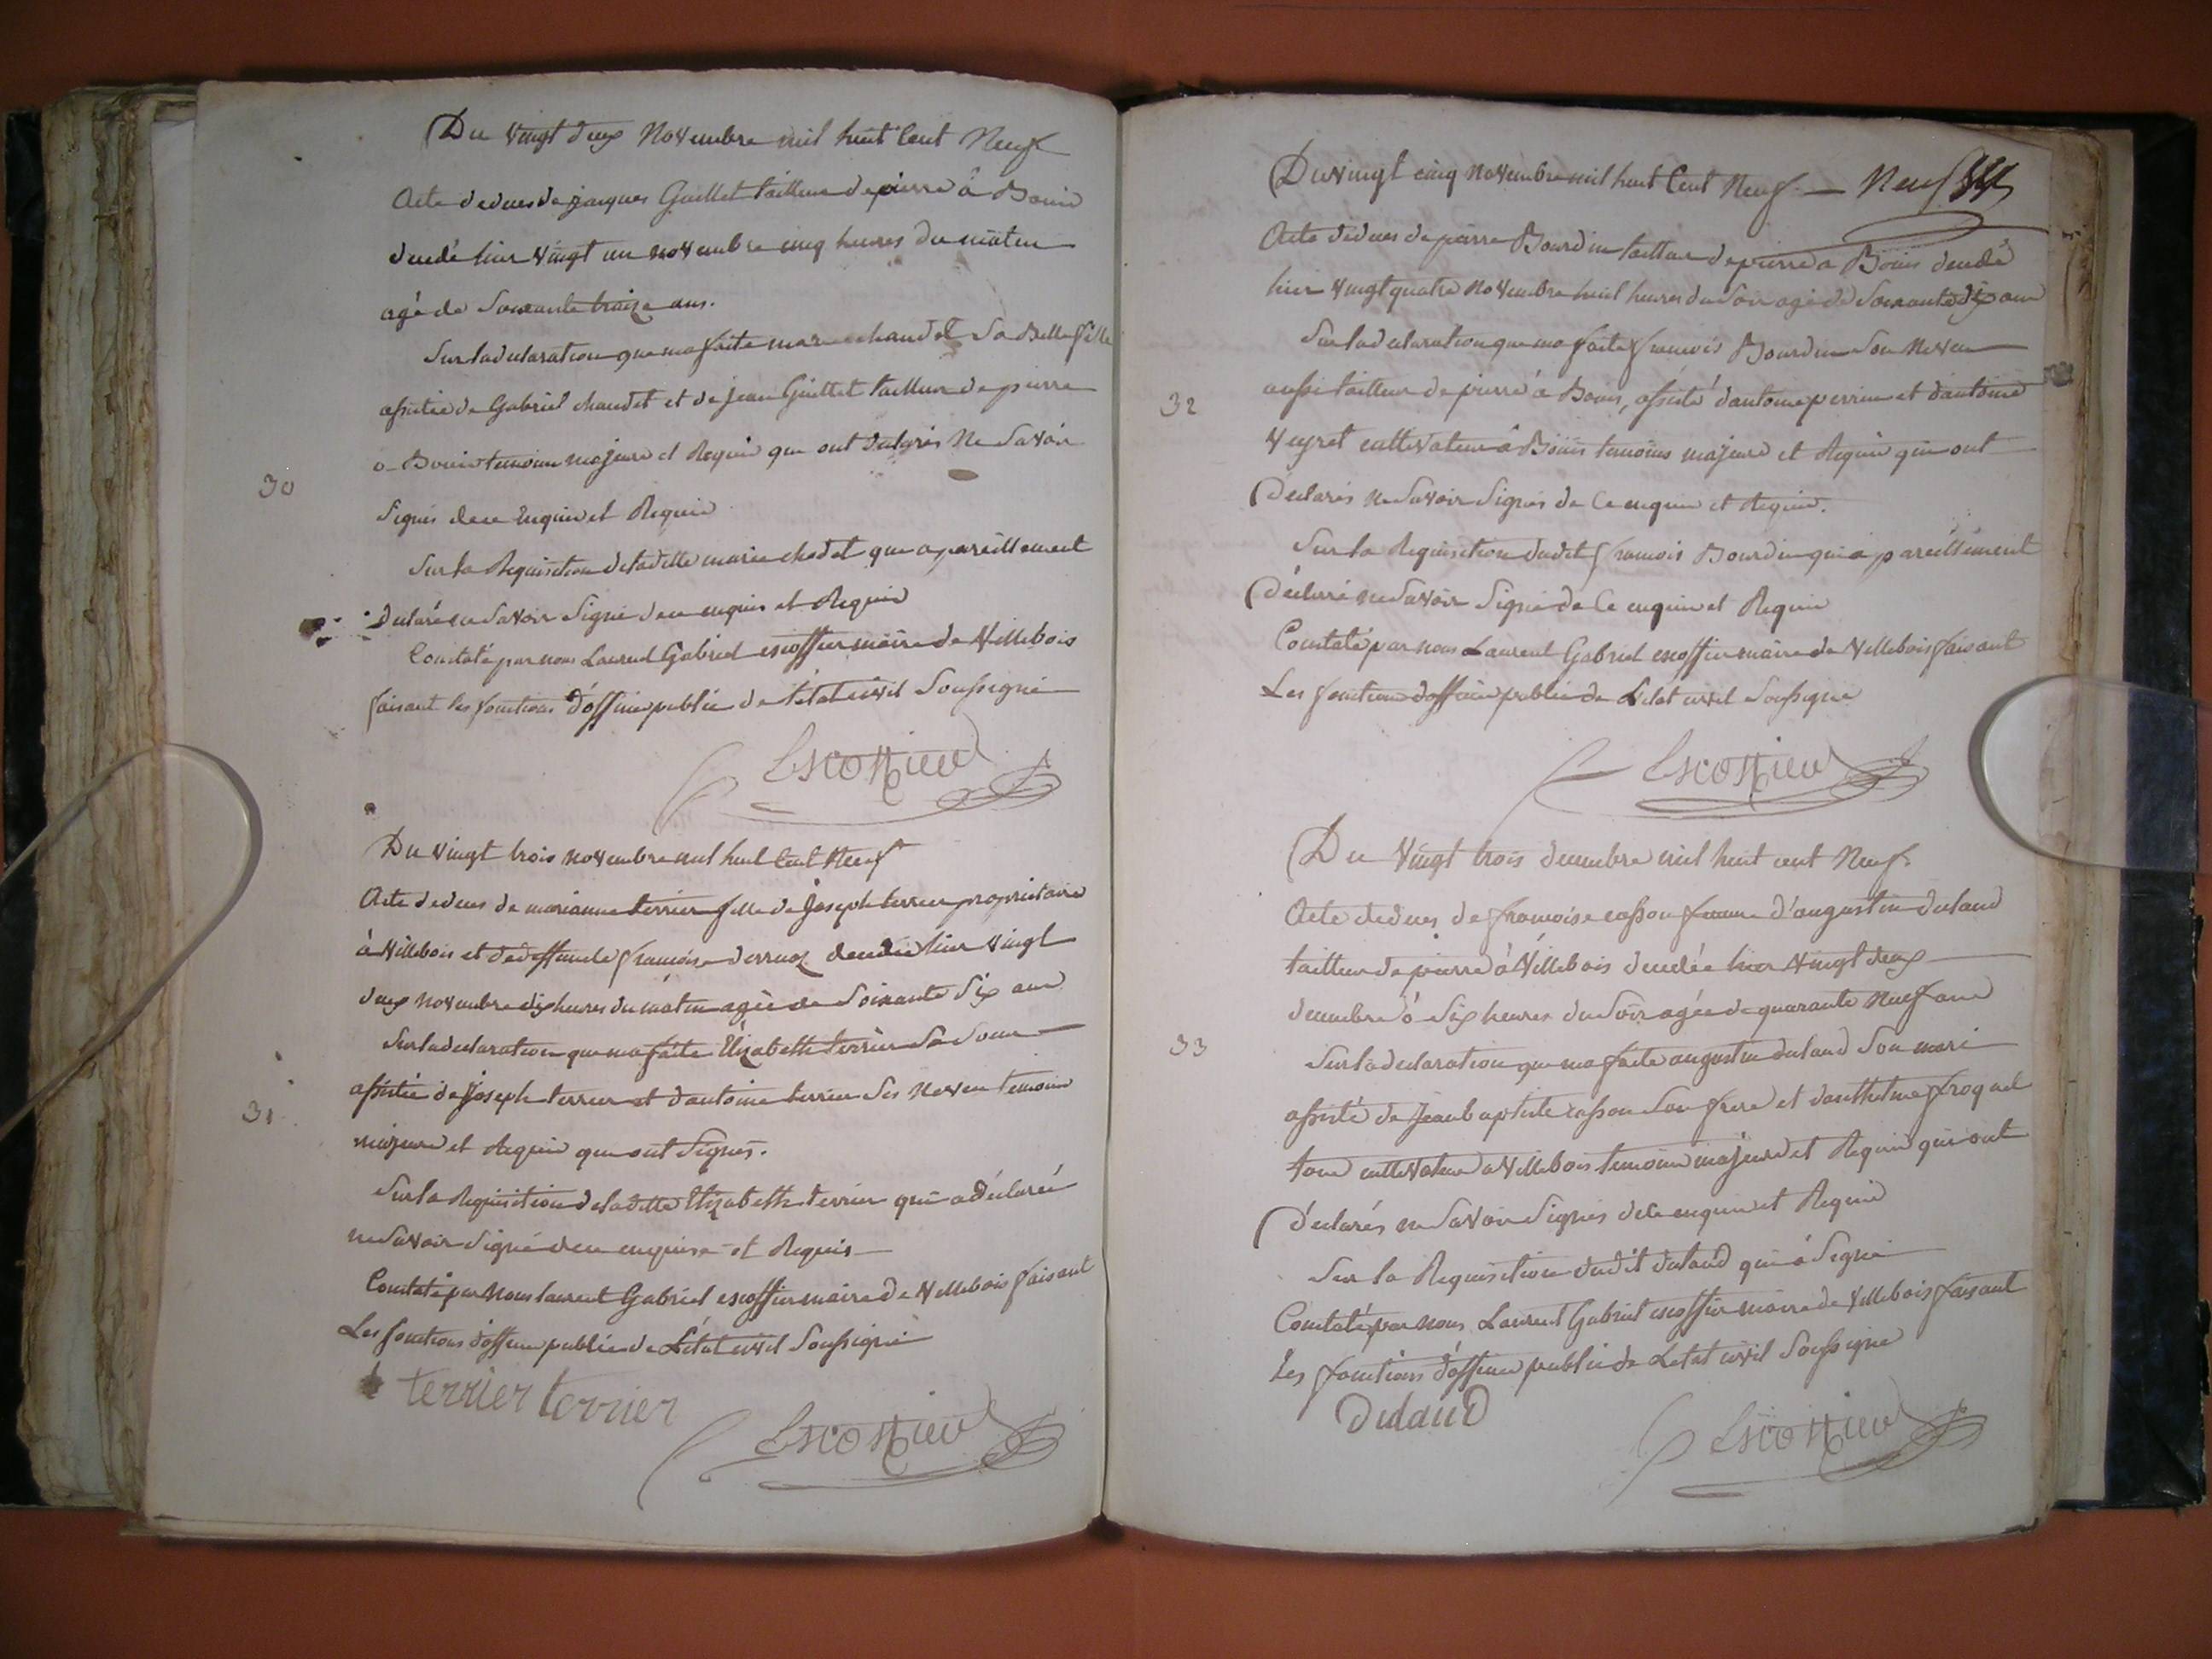 Du vingt deux Novembre mil huit Cent Neuf
Acte de deces de jacques Guillet tailleur de pierre à Bouis
decedé hier vingt un novembre cinq heures du matin
agé de Soixante treize ans.
Sur la declaration que ma faite marie chaudet Sa Belle fille
assistée de Gabriel chaudet et de jean Guillet tailleur de pierre
a Bouis temoins majeurs et Requis qui ont declarés Ne Savoir
30
Signés de ce Enquis et Requis
Sur la Requisition de ladite marie chodet qui a pareillement
declaré ne Savoir Signé de ce enquis et Requis
Constaté par nous Laurent Gabriel escoffier maire de Villebois
faisant les fonctions d'officier public de l'état civil Soussigné
Escoffier
Du vingt trois novembre mil huit Cent Neuf
Acte de deces de marianne terrier fille de Joseph terrier proprietaire
à Villebois et de deffuncte françoise decedée hier vingt
deux novembre dix heures du matin agée de Soixante Six ans
Sur la declaration que ma faite Elizabeth terrier Sa Soeur
assistée de Joseph terrier et d'antoine terrier Ses Neveu temoins
31
majeurs et Requis qui ont Signés.
Sur la Requisition de ladite Elizabeth terrier qui a déclaré
ne Savoir Signé de ce enquise et Requis
Constaté par Nous laurent Gabriel escoffier maire de Villebois faisant
Les fonctions d'officier public de L'état civil Soussigné
terrier terrier
Escoffier
Du vingt cinq Novembre mil huit Cent Neuf — Neuf
Acte de deces de pierre Bourdin tailleur de pierre a Bouis decedé
hier vingt quatre Novembre huit heures du Soir agé de Soixante dix ans
Sur la declaration que ma faite francois Bourdin Son Neveu
aussi tailleur de pierre à Bouis, assisté d'antoine perrin et d'antoine
32
Veyret cultivateur à Bouis temoins majeurs et Requis qui ont
Déclarés ne Savoir Signés de Ce enquis et Requis.
Sur la Requisition dudit francois Bourdin qui a pareillement
Déclaré ne Savoir Signé de Ce enquis et Requis
Constaté par nous Laurent Gabriel escoffier maire de Villebois faisant
Les fonctions d'officier public de L'état civil Soussigné
Escoffier
Du Vingt trois decembre mil huit cent Neuf.
Acte de deces de francoise casson femme d'augustin dulaud
tailleur de pierre à Villebois decedée hier Vingt deux
decembre à Six heures du Soir agée de quarante Neuf ans
Sur la declaration que ma faite augustin dulaud Son mari
33
assisté de Jean baptiste casson Son frere et danthelme froquet
tous cultivateurs a Villebois temoins majeurs et Requis qui ont
déclarés ne Savoir Signés de Ce enquis et Requis
Sur la Requisition dudit dulaud qui a Signé
Constaté par nous Laurent Gabriel escoffier maire de Villebois faisant
les fonctions d'officier public de L'etat civil Soussigné
Dulaud
Escoffier